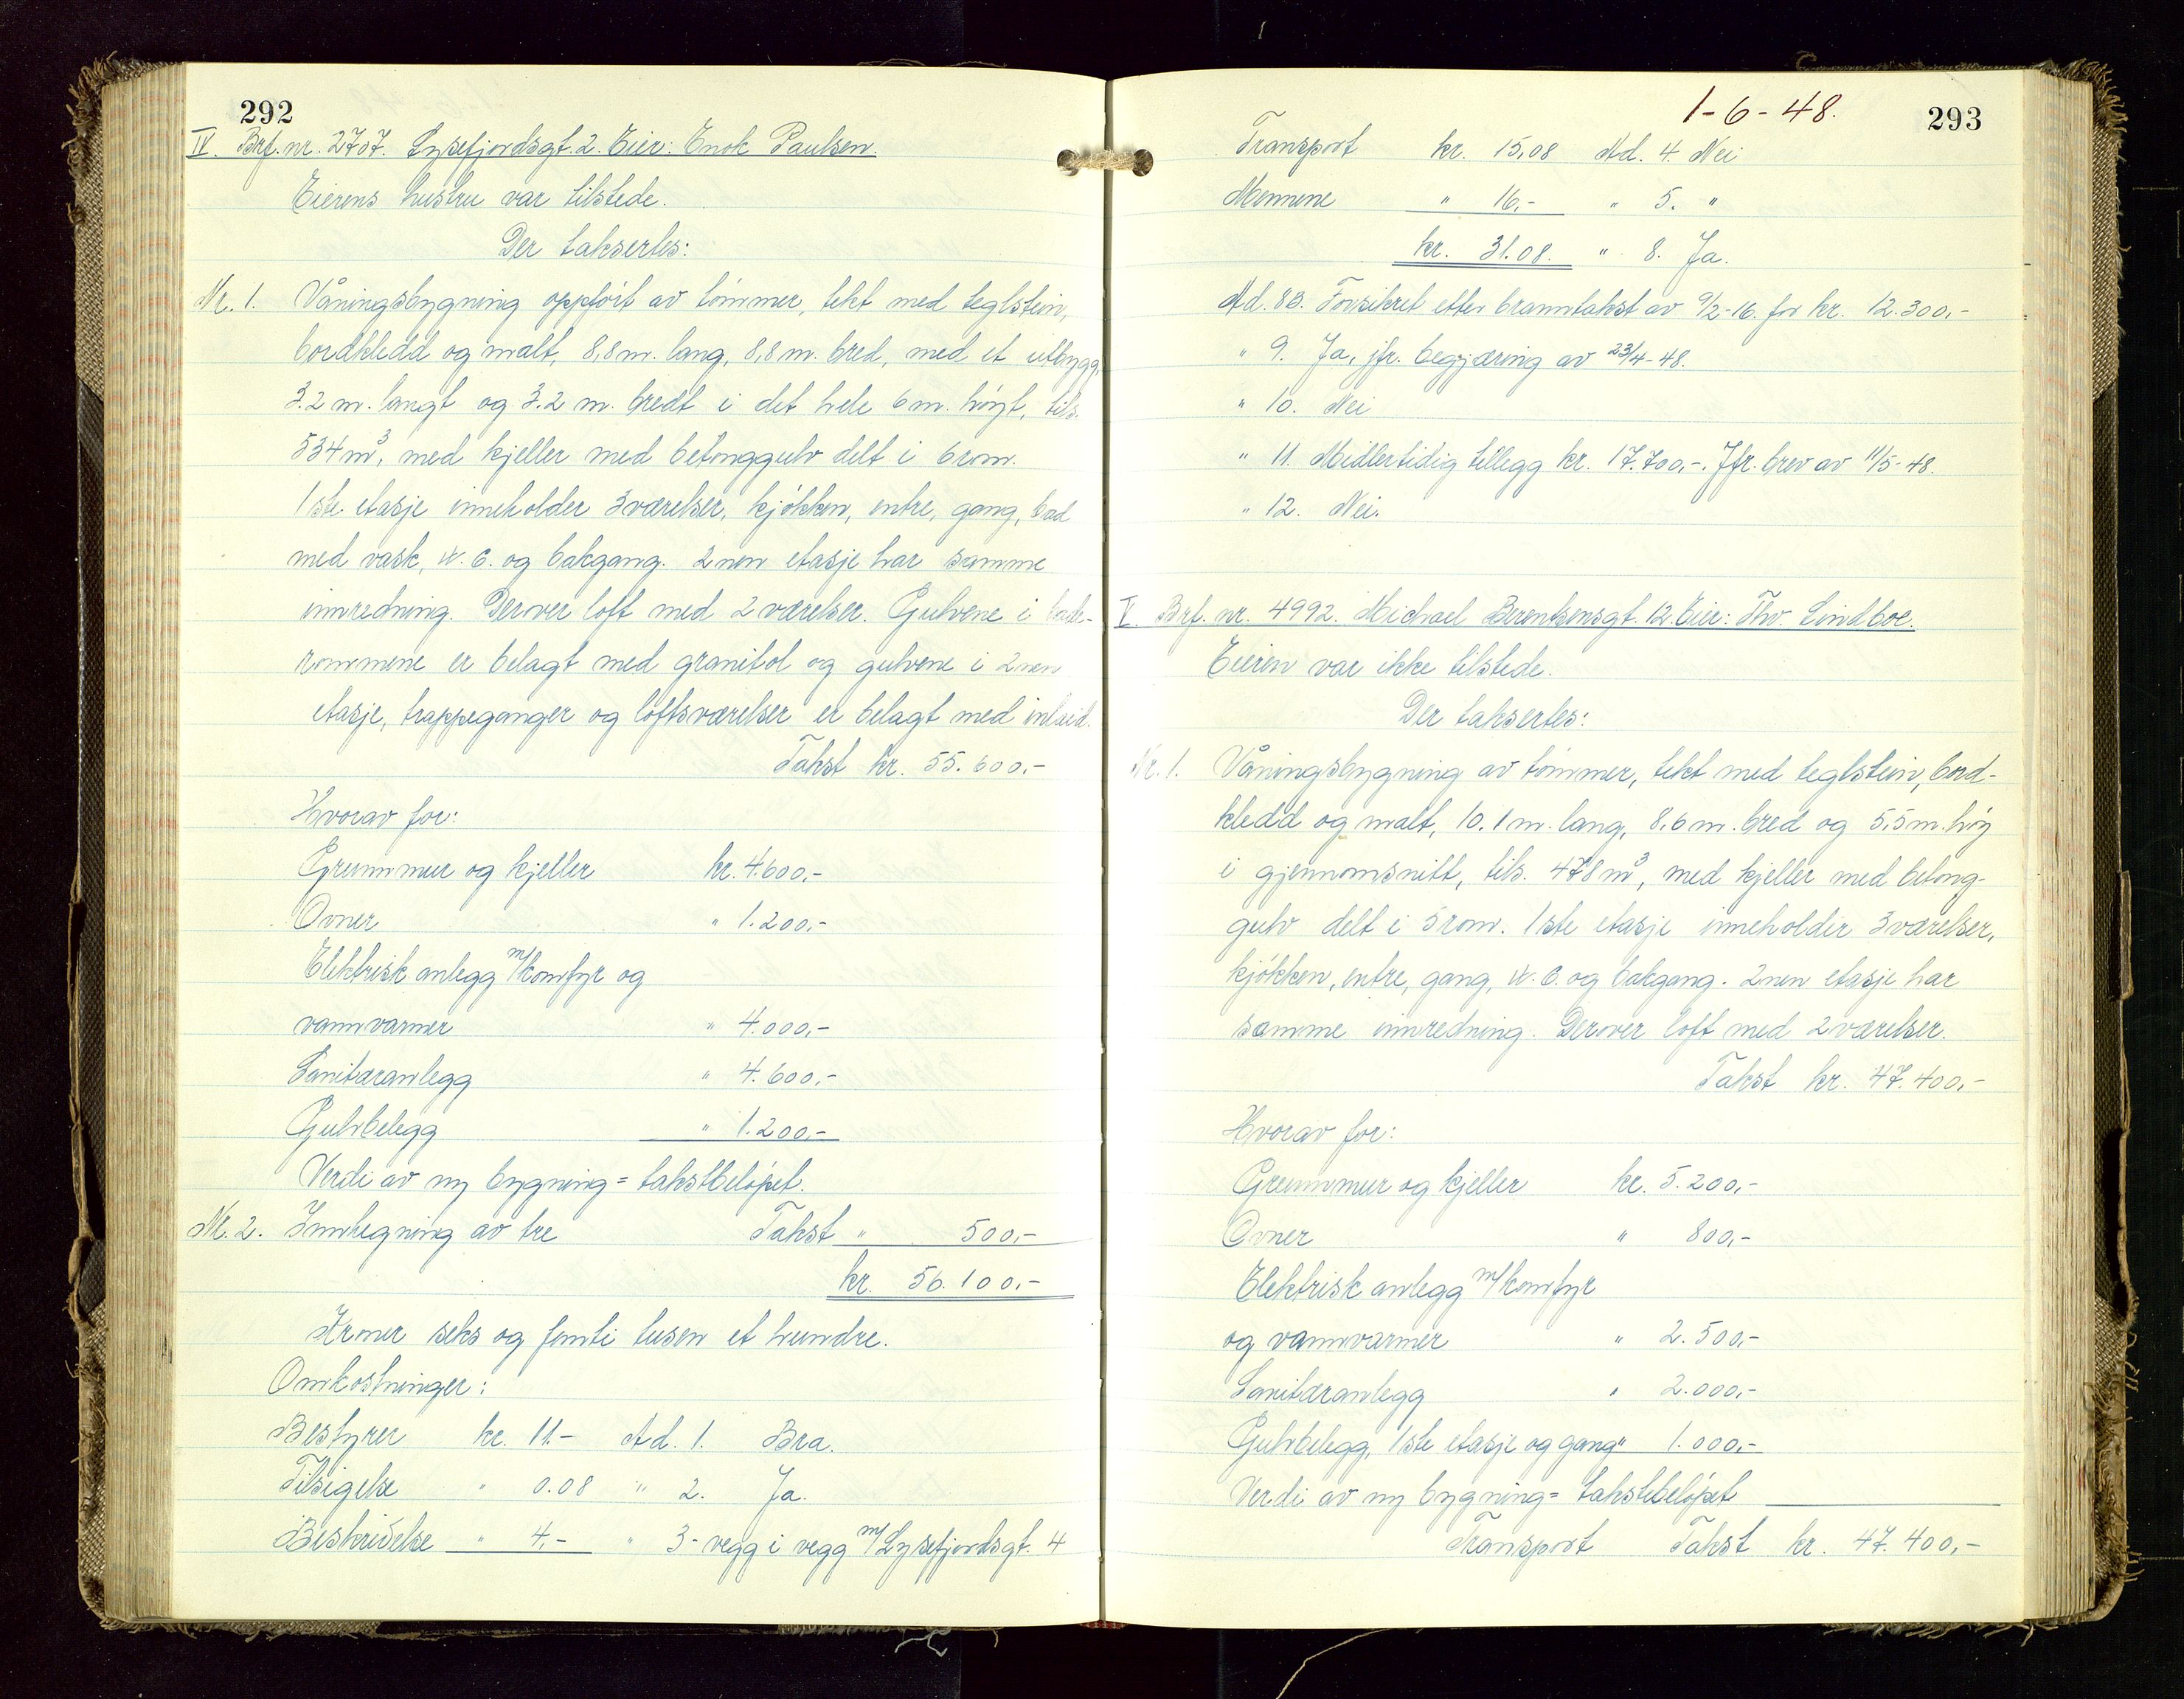 292
IV. Brf. nr. 2707. Lysefjordsgt. 2. Eier: Enok Paulsen.
Eierens hustru var tilstede.
Der taksertes:
Nr. 1. Våningsbygning oppført av tømmer, tekt med teglstein,
bordkledd og malt, 8,8 m. lang, 8,8 m. bred, med et utbygg,
3.2 m. langt og 3.2 m. bredt i det hele 6 m. høyt, tils.
534 m³, med kjeller med betonggulv delt i 6 rom.
1ste. etasje inneholder 3 værelser, kjøkken, entre, gang, bad
med vask, W.C. og bakgang. 2nen etasje har samme
innredning. Derover loft med 2 værelser. Gulvene i bade-
rommene er belagt med granitol og gulvene i 2nen
etasje, trappeganger og loftsværelser er belagt med inlaid.
Takst kr. 55.600,-
Hvorav for:
Grunnmur og kjeller kr. 4.600,-
Ovner " 1.200,-
Elektrisk anlegg m/komfyr og
vannvarmer " 4.000,-
Sanitæranlegg " 4.600,-
Gulvbelegg " 1.200,-
Verdi av ny bygning = takstbeløpet.
Nr. 2. Innhegning av tre Takst " 500,-
kr. 56.100,-
Kroner seks og femti tusen et hundre.
Omkostninger:
Bestyrer kr. 11.- Ad. 1. Bra.
Tilsigelse " 0.08 " 2. Ja.
Beskrivelse " 4,- " 3 - vegg i vegg m/Lysefjordsgt. 4
1-6-48.
293
Transport kr. 15,08 Ad. 4. Nei
Mennene " 16,- " 5. "
kr. 31.08. " 8. Ja.
Ad. 8B. Forsikret etter branntakst av 9/2-16. for kr. 12.300,-
" 9. Ja, jfr. begjæring av 23/4-48.
" 10. Nei
" 11. Midlertidig tillegg kr. 17.700,-. Jfr. brev av 11/5-48.
" 12. Nei.
V. Brf. nr. 4992. Michael Berentsensgt. 12. Eier: Thv. Lindboe.
Eieren var ikke tilstede.
Der taksertes:
Nr. 1. Våningsbygning av tømmer, tekt med teglstein, bord-
kledd og malt, 10.1 m. lang, 8,6 m. bred og 5,5 m. høy
i gjennomsnitt, tils. 478 m³, med kjeller med betong-
gulv delt i 5 rom. 1ste etasje inneholder 3 værelser,
kjøkken, entre, gang, W.C. og bakgang. 2nen etasje har
samme innredning. Derover loft med 2 værelser.
Takst kr. 47.400,-
Hvorav for:
Grunnmur og kjeller kr. 5.200,-
Ovner " 800,-
Elektrisk anlegg m/komfyr
og vannvarmer " 2.500,-
Sanitæranlegg " 2.000,-
Gulvbelegg, 1ste etasje og gang " 1.000,-
Verdi av ny bygning = takstebeløpet
Transport Takst kr. 47.400,-